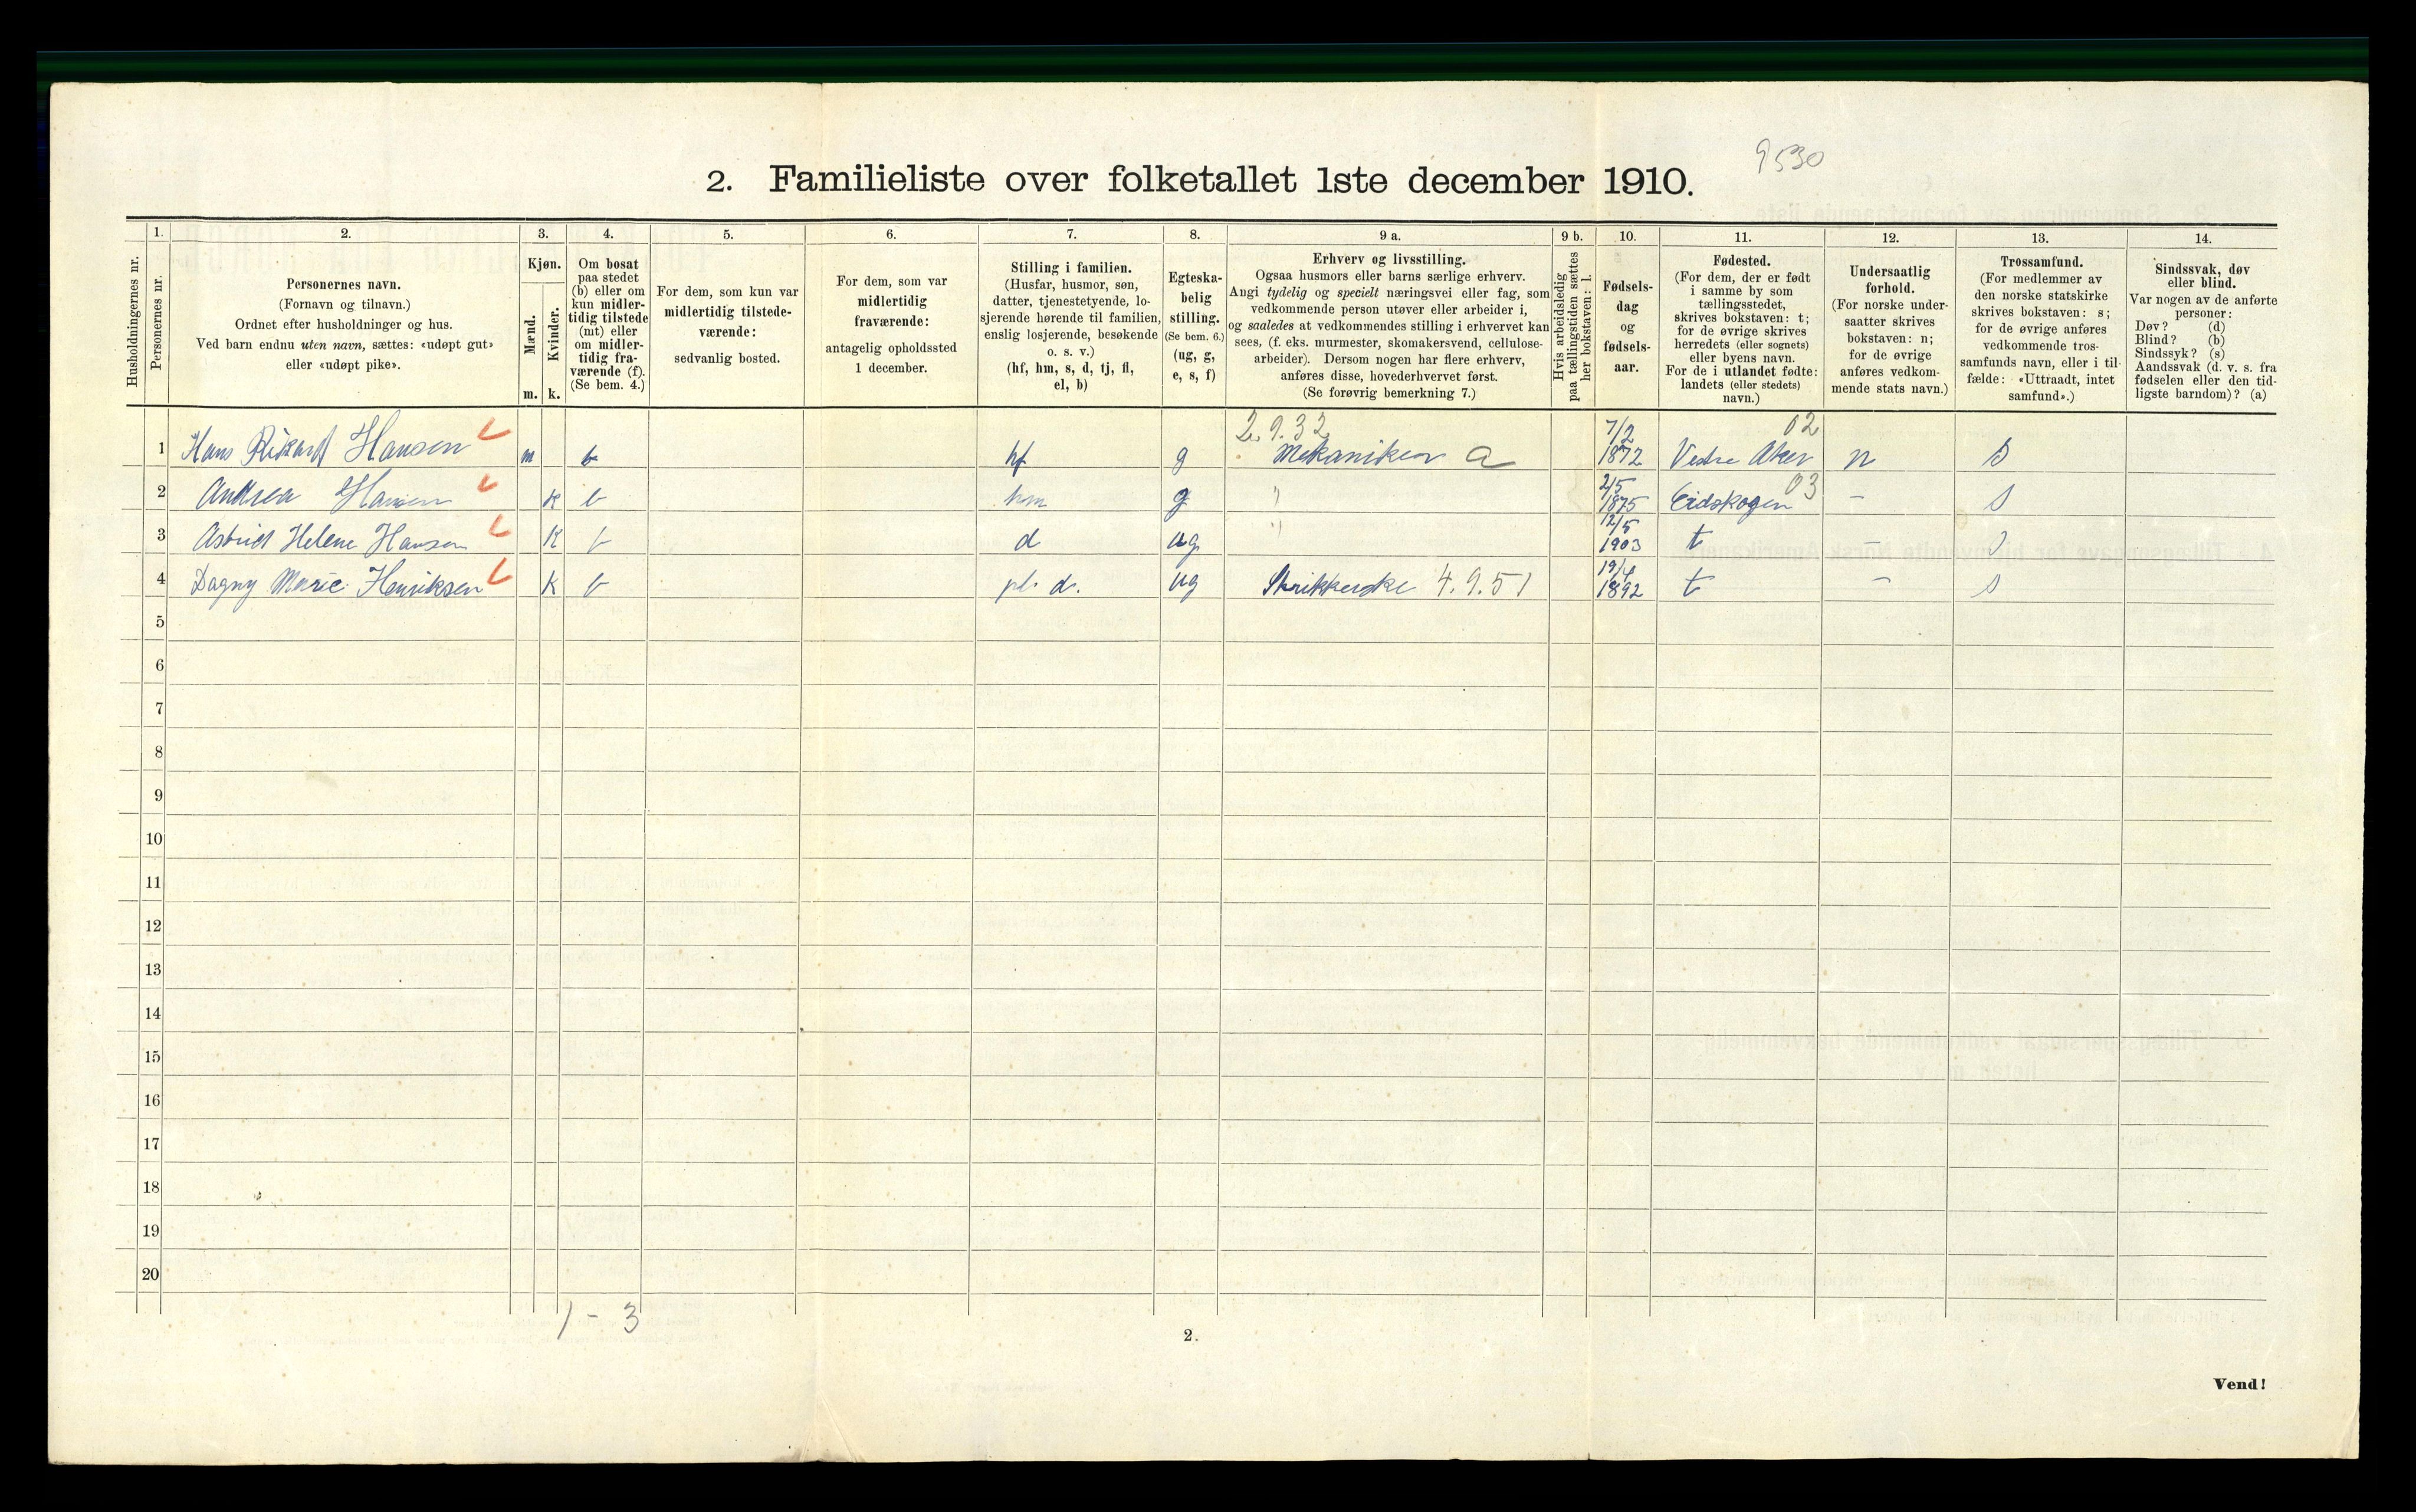 9530
2. Familieliste over folketallet 1ste december 1910.
Husholdningernes nr.
1.
Personernes nr.
2.
Personernes navn.
(Fornavn og tilnavn.)
Ordnet efter husholdninger og hus.
Ved barn endnu uten navn, sættes: «udøpt gut»
eller «udøpt pike».
3.
Kjøn.
Mænd.
Kvinder.
m. k.
4.
Om bosat
paa stedet
(b) eller om
kun midler-
tidig tilstede
(mt) eller
om midler-
tidig fra-
værende (f).
(Se bem. 4.)
5.
For dem, som kun var
midlertidig tilstede-
værende:
sedvanlig bosted.
6.
For dem, som var
midlertidig
fraværende:
antagelig opholdssted
1 december.
7.
Stilling i familien.
(Husfar, husmor, søn,
datter, tjenestetyende, lo-
sjerende hørende til familien,
enslig losjerende, besøkende
o. s. v.)
(hf, hm, s, d, tj, fl,
el, b)
8.
Egteska-
belig
stilling.
(Se bem. 6.)
(ug, g,
e, s, f)
9 a.
Erhverv og livsstilling.
Ogsaa husmors eller barns særlige erhverv.
Angi tydelig og specielt næringsvei eller fag, som
vedkommende person utøver eller arbeider i,
og saaledes at vedkommendes stilling i erhvervet kan
sees, (f. eks. murmester, skomakersvend, cellulose-
arbeider). Dersom nogen har flere erhverv,
anføres disse, hovederhvervet først.
(Se forøvrig bemerkning 7.)
9 b.
Hvis arbeidsledig
paa tællingstiden sættes
her bokstaven: l.
10.
Fødsels-
dag
og
fødsels-
aar.
11.
Fødested.
(For dem, der er født
i samme by som
tællingsstedet,
skrives bokstaven: t;
for de øvrige skrives
herredets (eller sognets)
eller byens navn.
For de i utlandet fødte:
landets (eller stedets)
navn.)
12.
Undersaatlig
forhold.
(For norske under-
saatter skrives
bokstaven: n;
for de øvrige
anføres vedkom-
mende stats navn.)
13.
Trossamfund.
(For medlemmer av
den norske statskirke
skrives bokstaven: s;
for de øvrige anføres
vedkommende tros-
samfunds navn, eller i til-
fælde: «Uttraadt, intet
samfund».)
14.
Sindssvak, døv
eller blind.
Var nogen av de anførte
personer:
Døv? (d)
Blind? (b)
Sindssyk? (s)
Aandssvak (d. v. s. fra
fødselen eller den tid-
ligste barndom)? (a)
2.9.32 7/2 02
1 Hans Rikard Hansen m b hf g Mekaniker a 1872 Vestre Aker n s
2 Andrea Hansen k b hm g " 2/5 1875 Eidskogen 03 – s
3 Astrid Helene Hansen k b d ug " 12/5 1903 t – s
4 Dagny Marie Henriksen k b pl. d. ug Strikkerske 4.9.51 19/4 1892 t – s
5
6
7
8
9
10
11
12
13
14
15
16
17
18
19
20
1 - 3
2.
Vend!